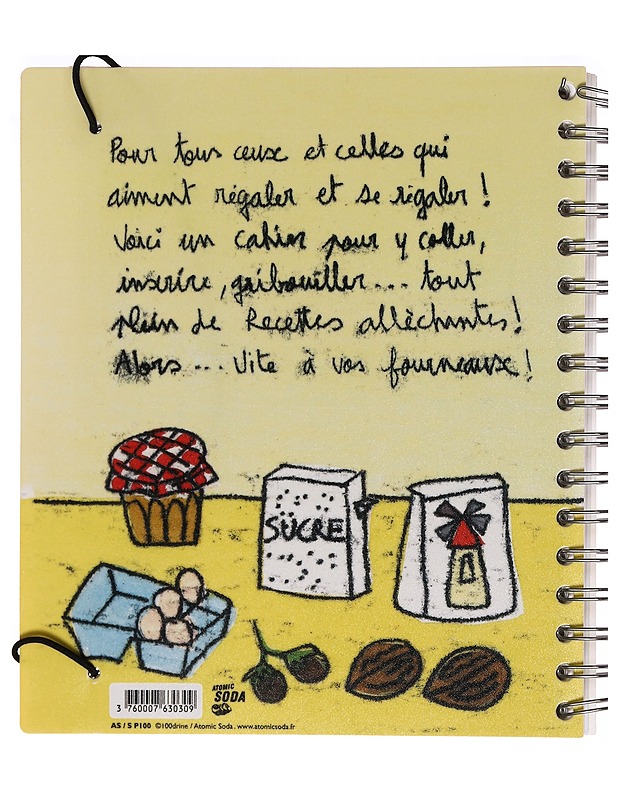 Pour tous ceux et celles qui
aiment régaler et se régaler !
Voici un cahier pour y coller,
inscrire, gribouiller... tout
plein de Recettes alléchantes !
Alors... Vite à vos fourneaux !
SUCRE
3 760007 630309
ATOMIC
SODA
AS / S P100 ©100drine / Atomic Soda . www.atomicsoda.fr